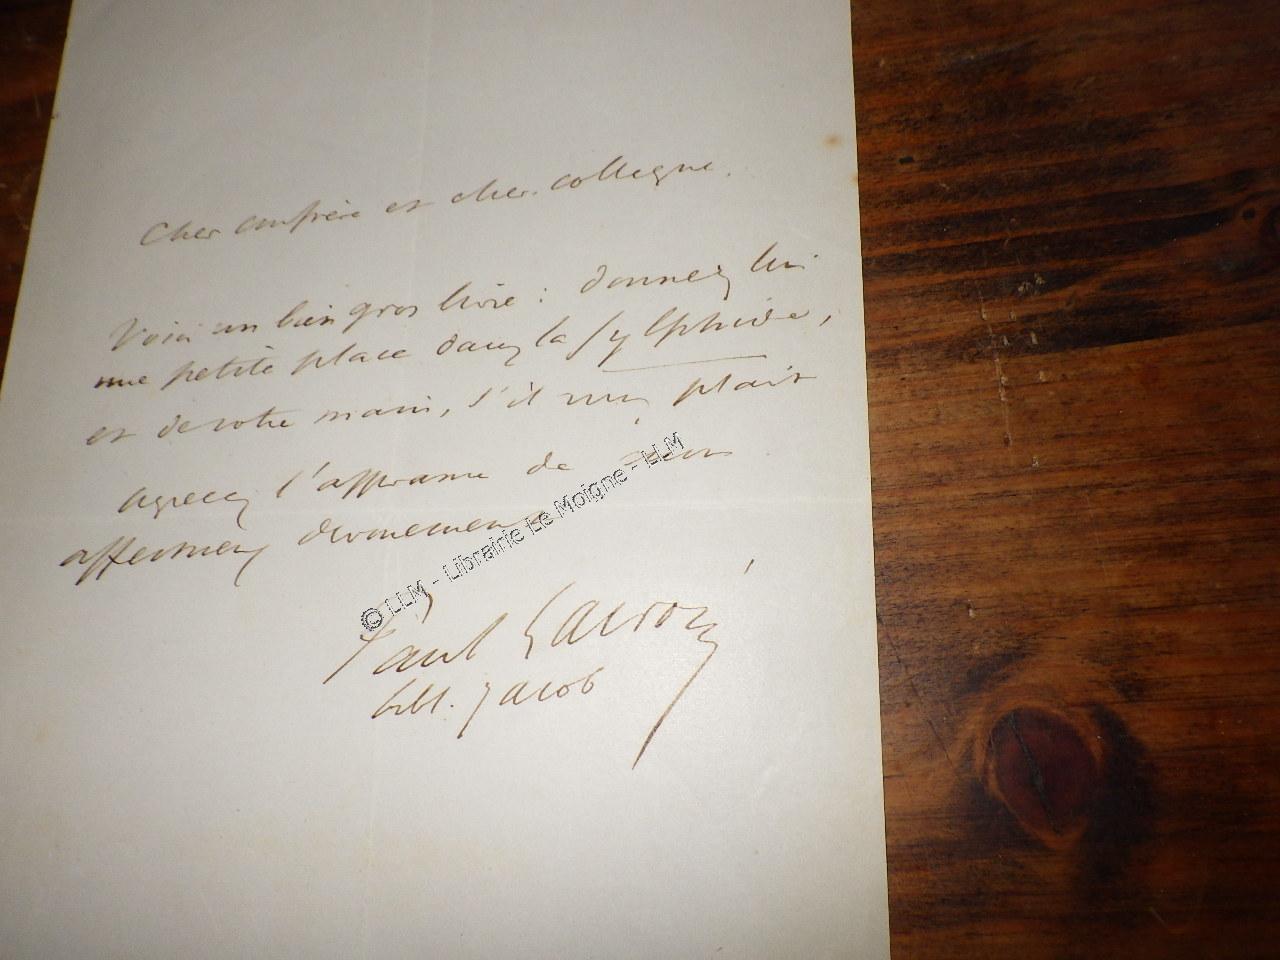 Cher confrère et cher collegue.
Voici un bien gros livre : donnez lui
une petite place dans la Sylphide,
et de votre main, s'il vous plait
agreez l'assurance de
affectueux devouement
© LLM - Librairie Le Moigne - LLM
Paul Lacroix
bibl. Jacob